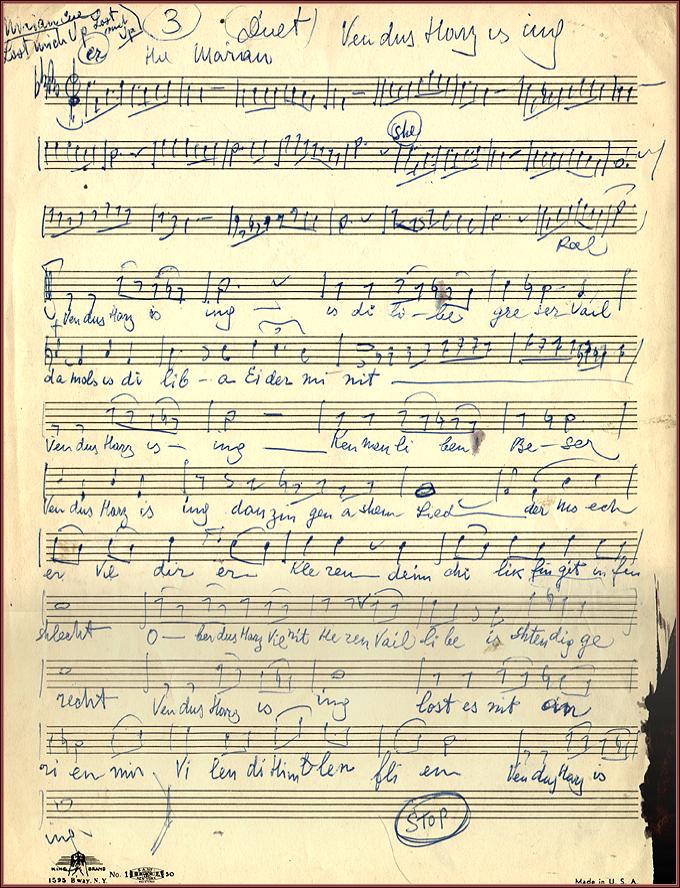 3 (Duet) Ven dus Harz is ing
er
He Marian
She
Real
Ven dus Harz is ing — is di li-be gre ser vail
da mols is di lib - a Ei der mi nit
Ven dus Harz is — ing Ken men li ben Be-ser
Ven dus Harz is ing dan zin gen a shem Lied der mo ech
er Vie dir er Kle ren
shlecht O — ber dus Harz Vie nit He ren Vail li be is shtendig ge
recht Ven dus Harz is ing lost es nit
ri en mir Vi len di Him blen fli en Ven dus Harz is
ing
STOP
KING BRAND
1595 B'way, N.Y.
No. 1
30
Made in U. S. A.